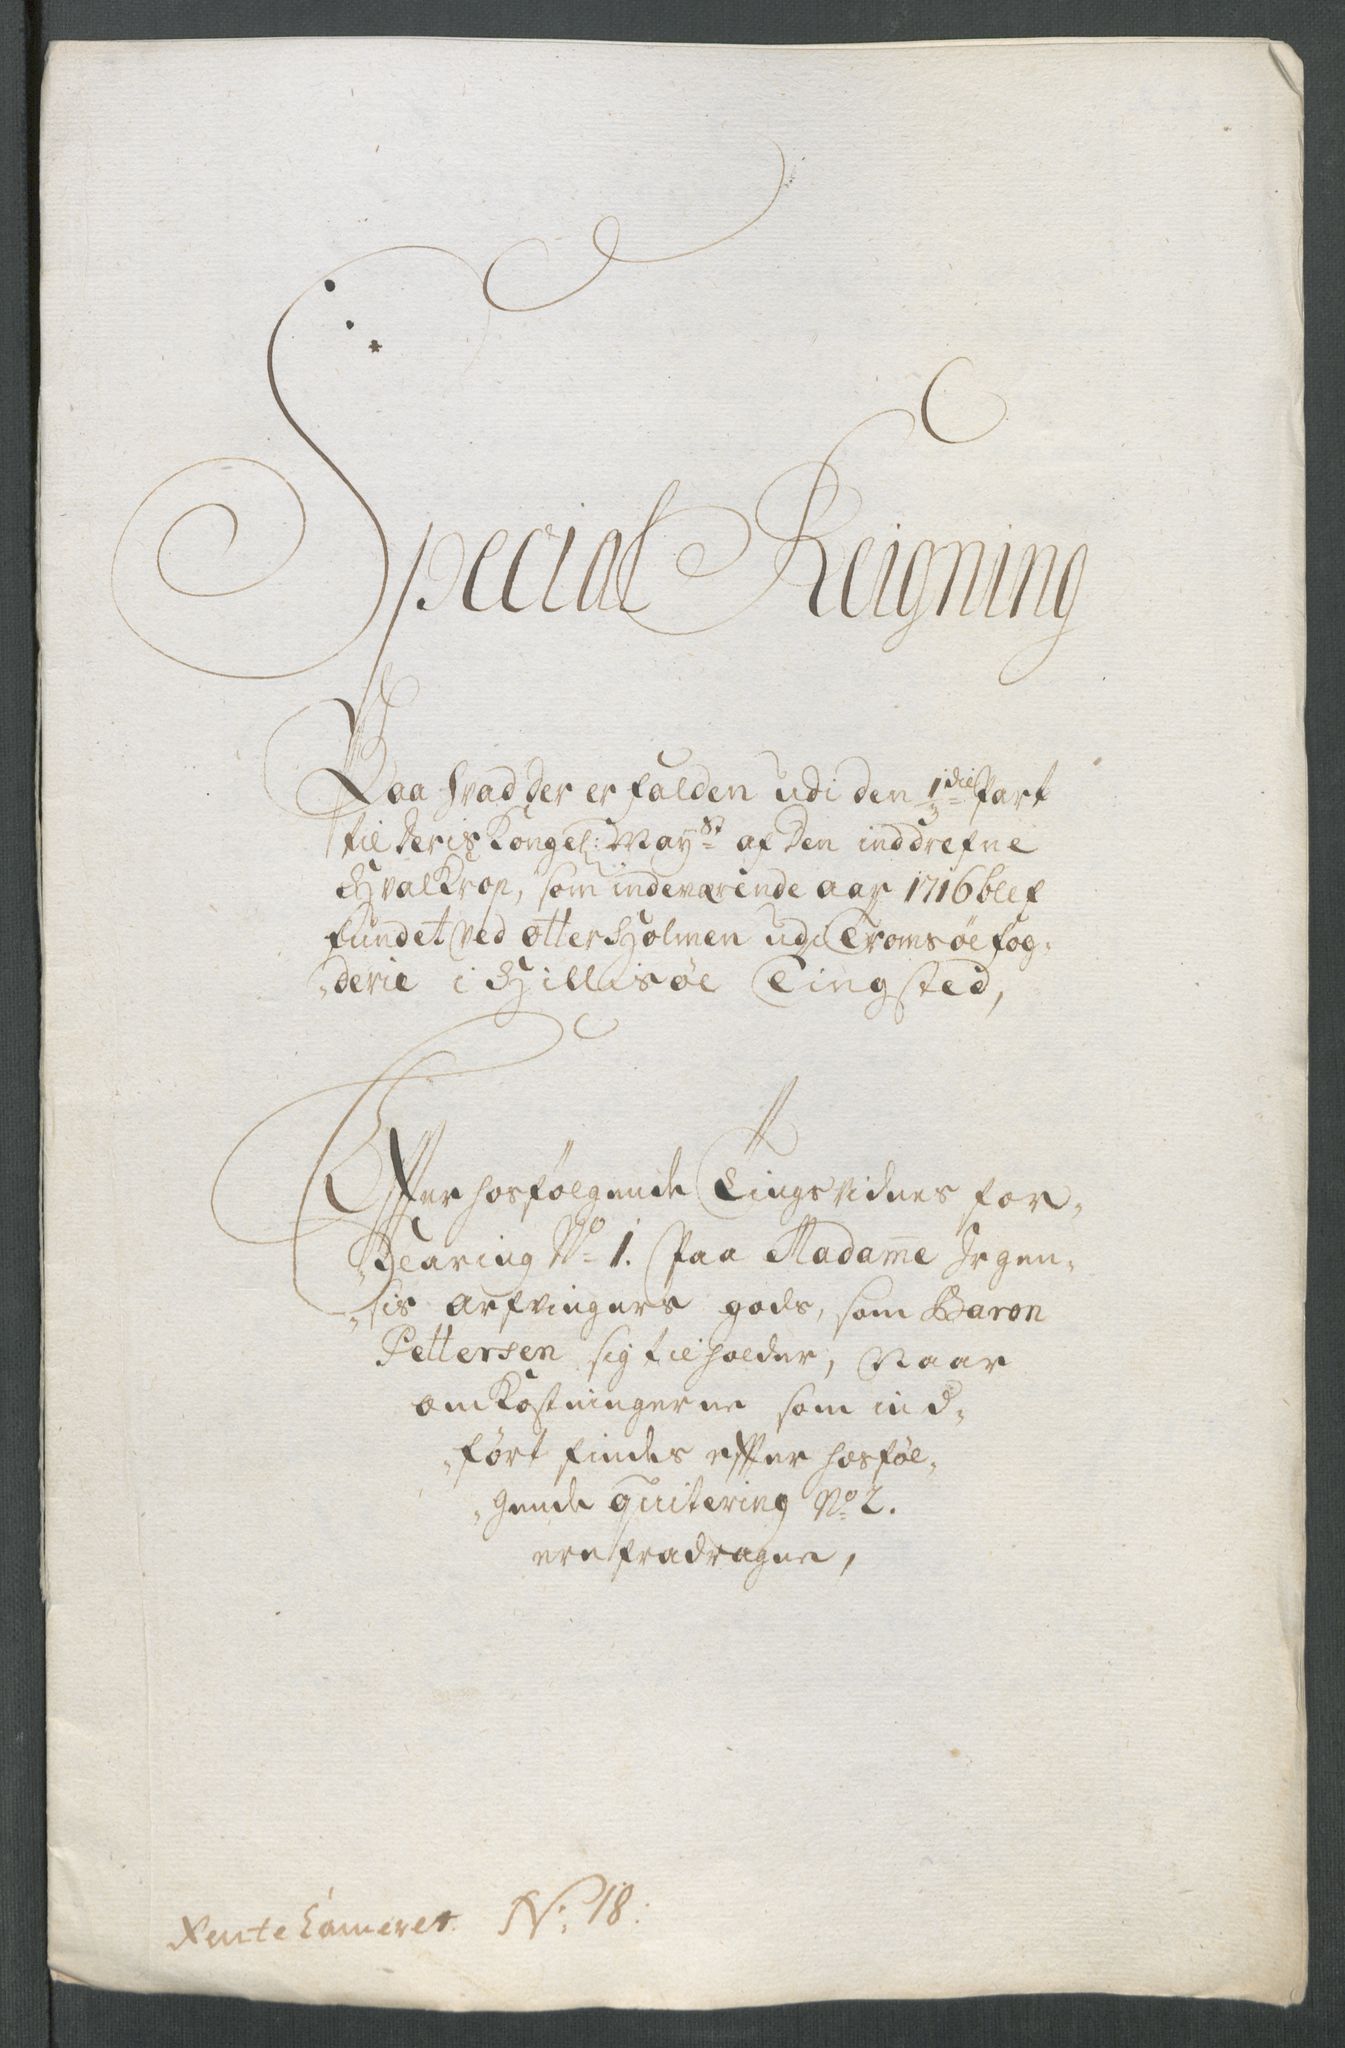 Special Reigning
Paa hvad der er falden udi den 1/3 die Part
til deris Kongel: May:st af den inddrefne
Hvalkrop, som indeværende aar 1716 blef
fundet ved Otterholmen udi Tromsøe fog-
-derie i Hillisøe Tingsted,
Efter hosfølgende Tingsvidnes for-
-Klaring No 1. Paa Madame Irgen-
-sis arfvingers gods, som Baron
Pettersen sig tilholder, Naar
omKostningerne som ind-
-ført findes efter hosføl-
-gende quitering No 2.
ere fradragne,
Rente Cameret N: 18: